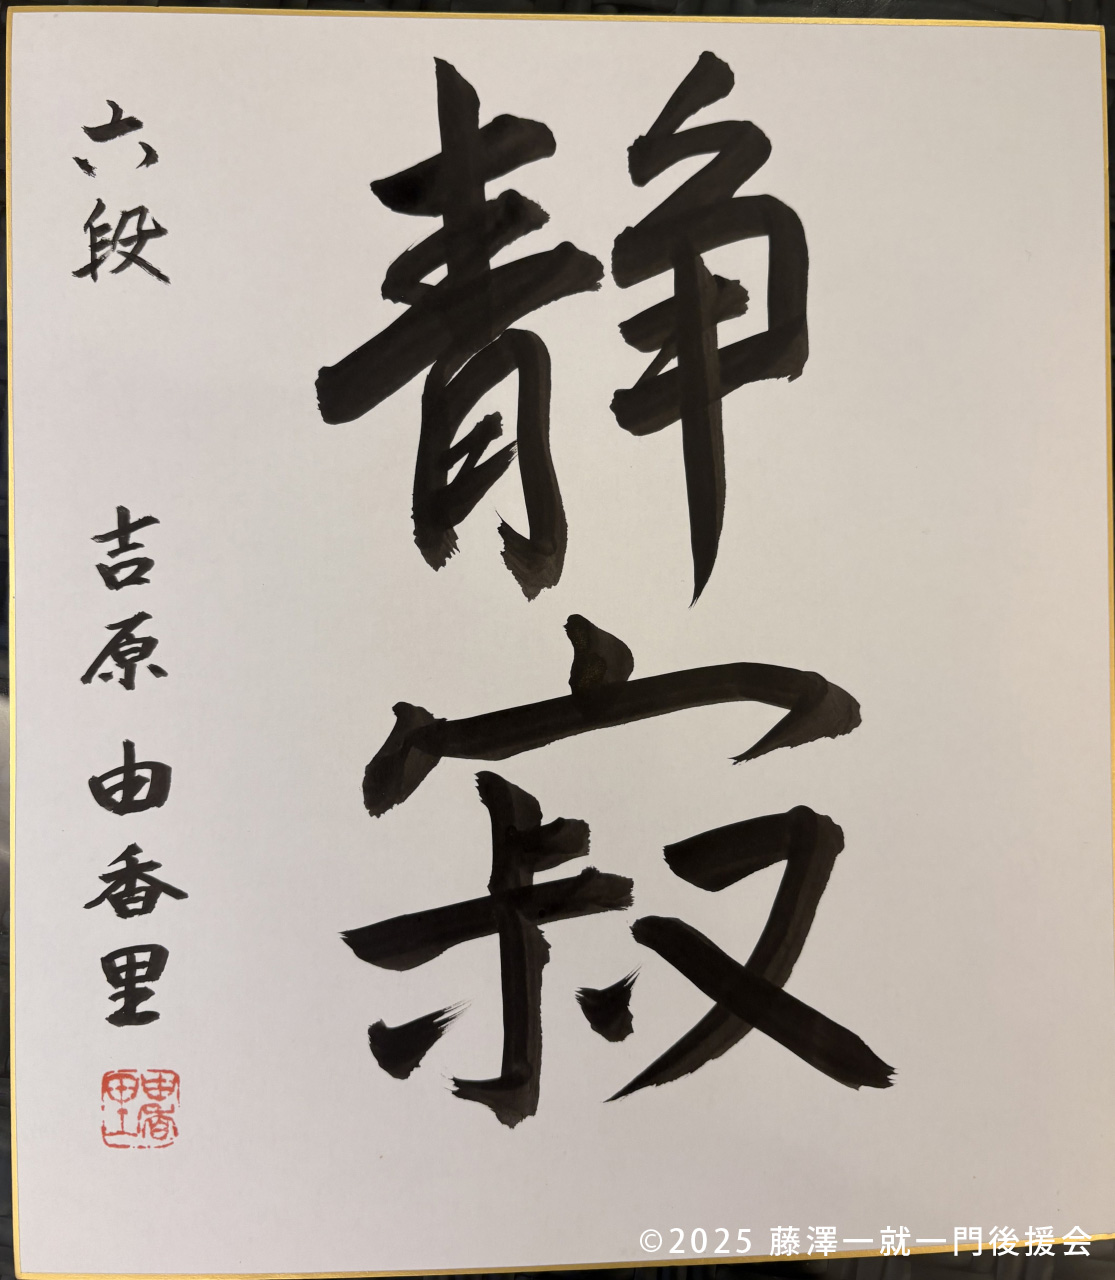 静寂
六段 吉原由香里
由香里
©2025 藤澤一就一門後援会